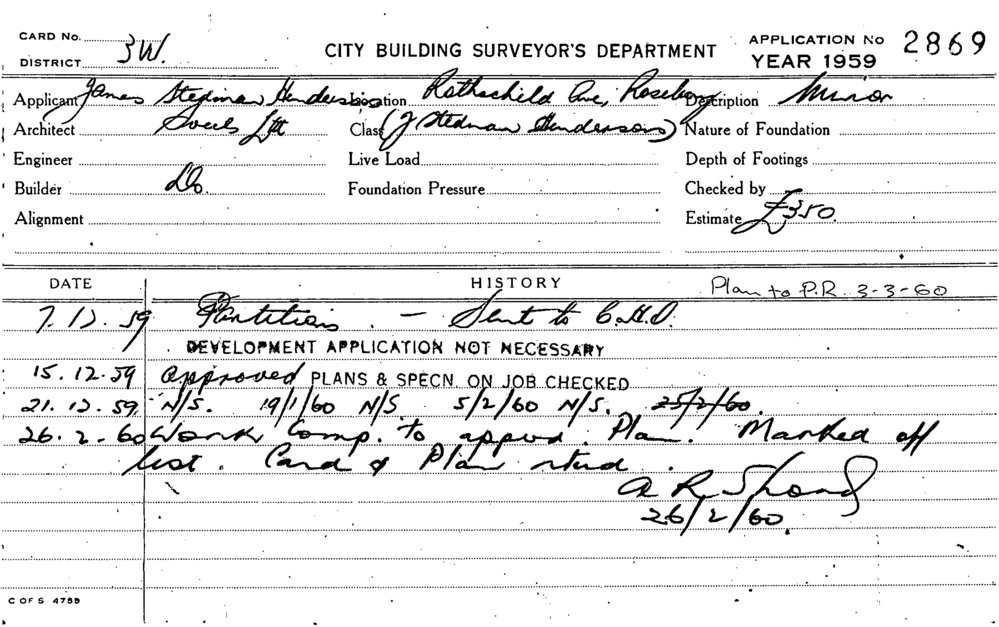 CARD No.
DISTRICT 3W. CITY BUILDING SURVEYOR'S DEPARTMENT APPLICATION No 2869
YEAR 1959
Applicant James Stedman Hendersons Location Rothschild Ave, Rosebery Description Minor
Architect Sweets Ltd Class (J Stedman Hendersons) Nature of Foundation
Engineer Live Load Depth of Footings
Builder Do. Foundation Pressure Checked by
Alignment Estimate £350.
DATE HISTORY Plan to P.R. 3-3-60
7.12.59 Partitions. - Sent to C.H.O.
DEVELOPMENT APPLICATION NOT NECESSARY
15.12.59 Approved PLANS & SPECN. ON JOB CHECKED
21.12.59. N/S. 19/1/60 N/S. 5/2/60 N/S. 25/2/60.
26.2.60 Work Comp. to appvd. Plan. Marked off
list. Card & Plan rtnd.
A R
26/2/60.
C OF S 4759